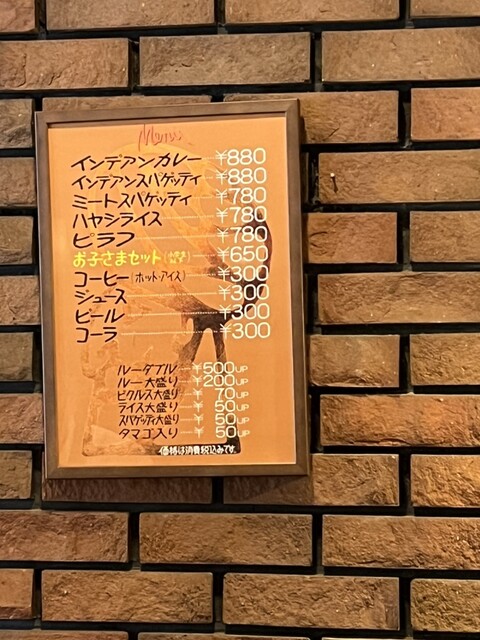 Menu
インデアンカレー ¥880
インデアンスパゲッティ ¥880
ミートスパゲッティ ¥780
ハヤシライス ¥780
ピラフ ¥780
お子さまセット ¥650
コーヒー(ホット・アイス) ¥300
ジュース ¥300
ビール ¥300
コーラ ¥300
ルーダブル ¥500UP
ルー大盛り ¥200UP
ピクルス大盛り ¥70UP
ライス大盛り ¥50UP
スパゲッティ大盛り ¥50UP
タマゴ入り ¥50UP
価格は消費税込みです。